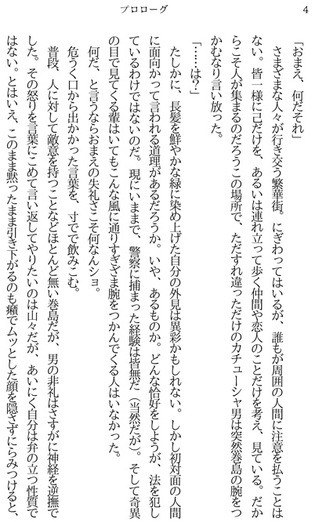 プロローグ
4
「おまえ、何だそれ」
　さまざまな人々が行き交う繁華街。にぎわってはいるが、誰もが周囲の人間に注意を払うことは
ない。皆一様に己だけを、あるいは連れ立って歩く仲間や恋人のことだけを考え、見ている。だか
らこそ人が集まるのだろうこの場所で、ただすれ違っただけのカチューシャ男は突然巻島の腕をつ
かむなり言い放った。
「……は？」
　たしかに、長髪を鮮やかな緑に染め上げた自分の外見は異彩かもしれない。しかし初対面の人間
に面向かって言われる道理があるだろうか。いや、あるものか。どんな恰好をしようが、法を犯し
たわけではないのだ。現にいままで、警察に捕まった経験は皆無だ（当然だが）。そして奇異
の目で見てくる輩はいてもこんな風に通りすぎざま腕をつかんでくる人はいなかった。
　何だ、と言うならおまえの失礼さこそ何なんショ。
　危うく口から出かかった言葉を、寸でで飲みこむ。
　普段、人に対して敵意を持つことなどほとんど無い巻島だが、男の非礼はさすがに神経を逆撫で
した。その怒りを言葉にこめて言い返してやりたいのは山々だが、あいにく自分は弁の立つ性質で
はない。とはいえ、このまま黙ったまま引き下がるのも癪でムッとした顔を隠さずにらみつけると、